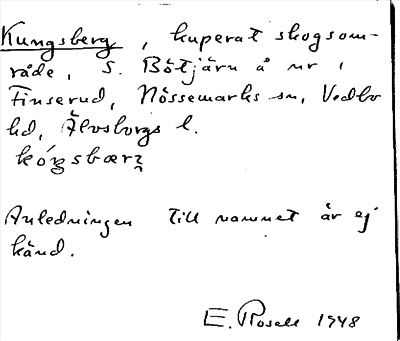 Kungsberg, kuperat skogsom-
råde, S. Bötjärn å nr 1
Finserud, Nössemarks sn, Vedbo
hd, Älvsborgs l.
Anledningen till namnet är ej
känd.
E. Rosell 1948